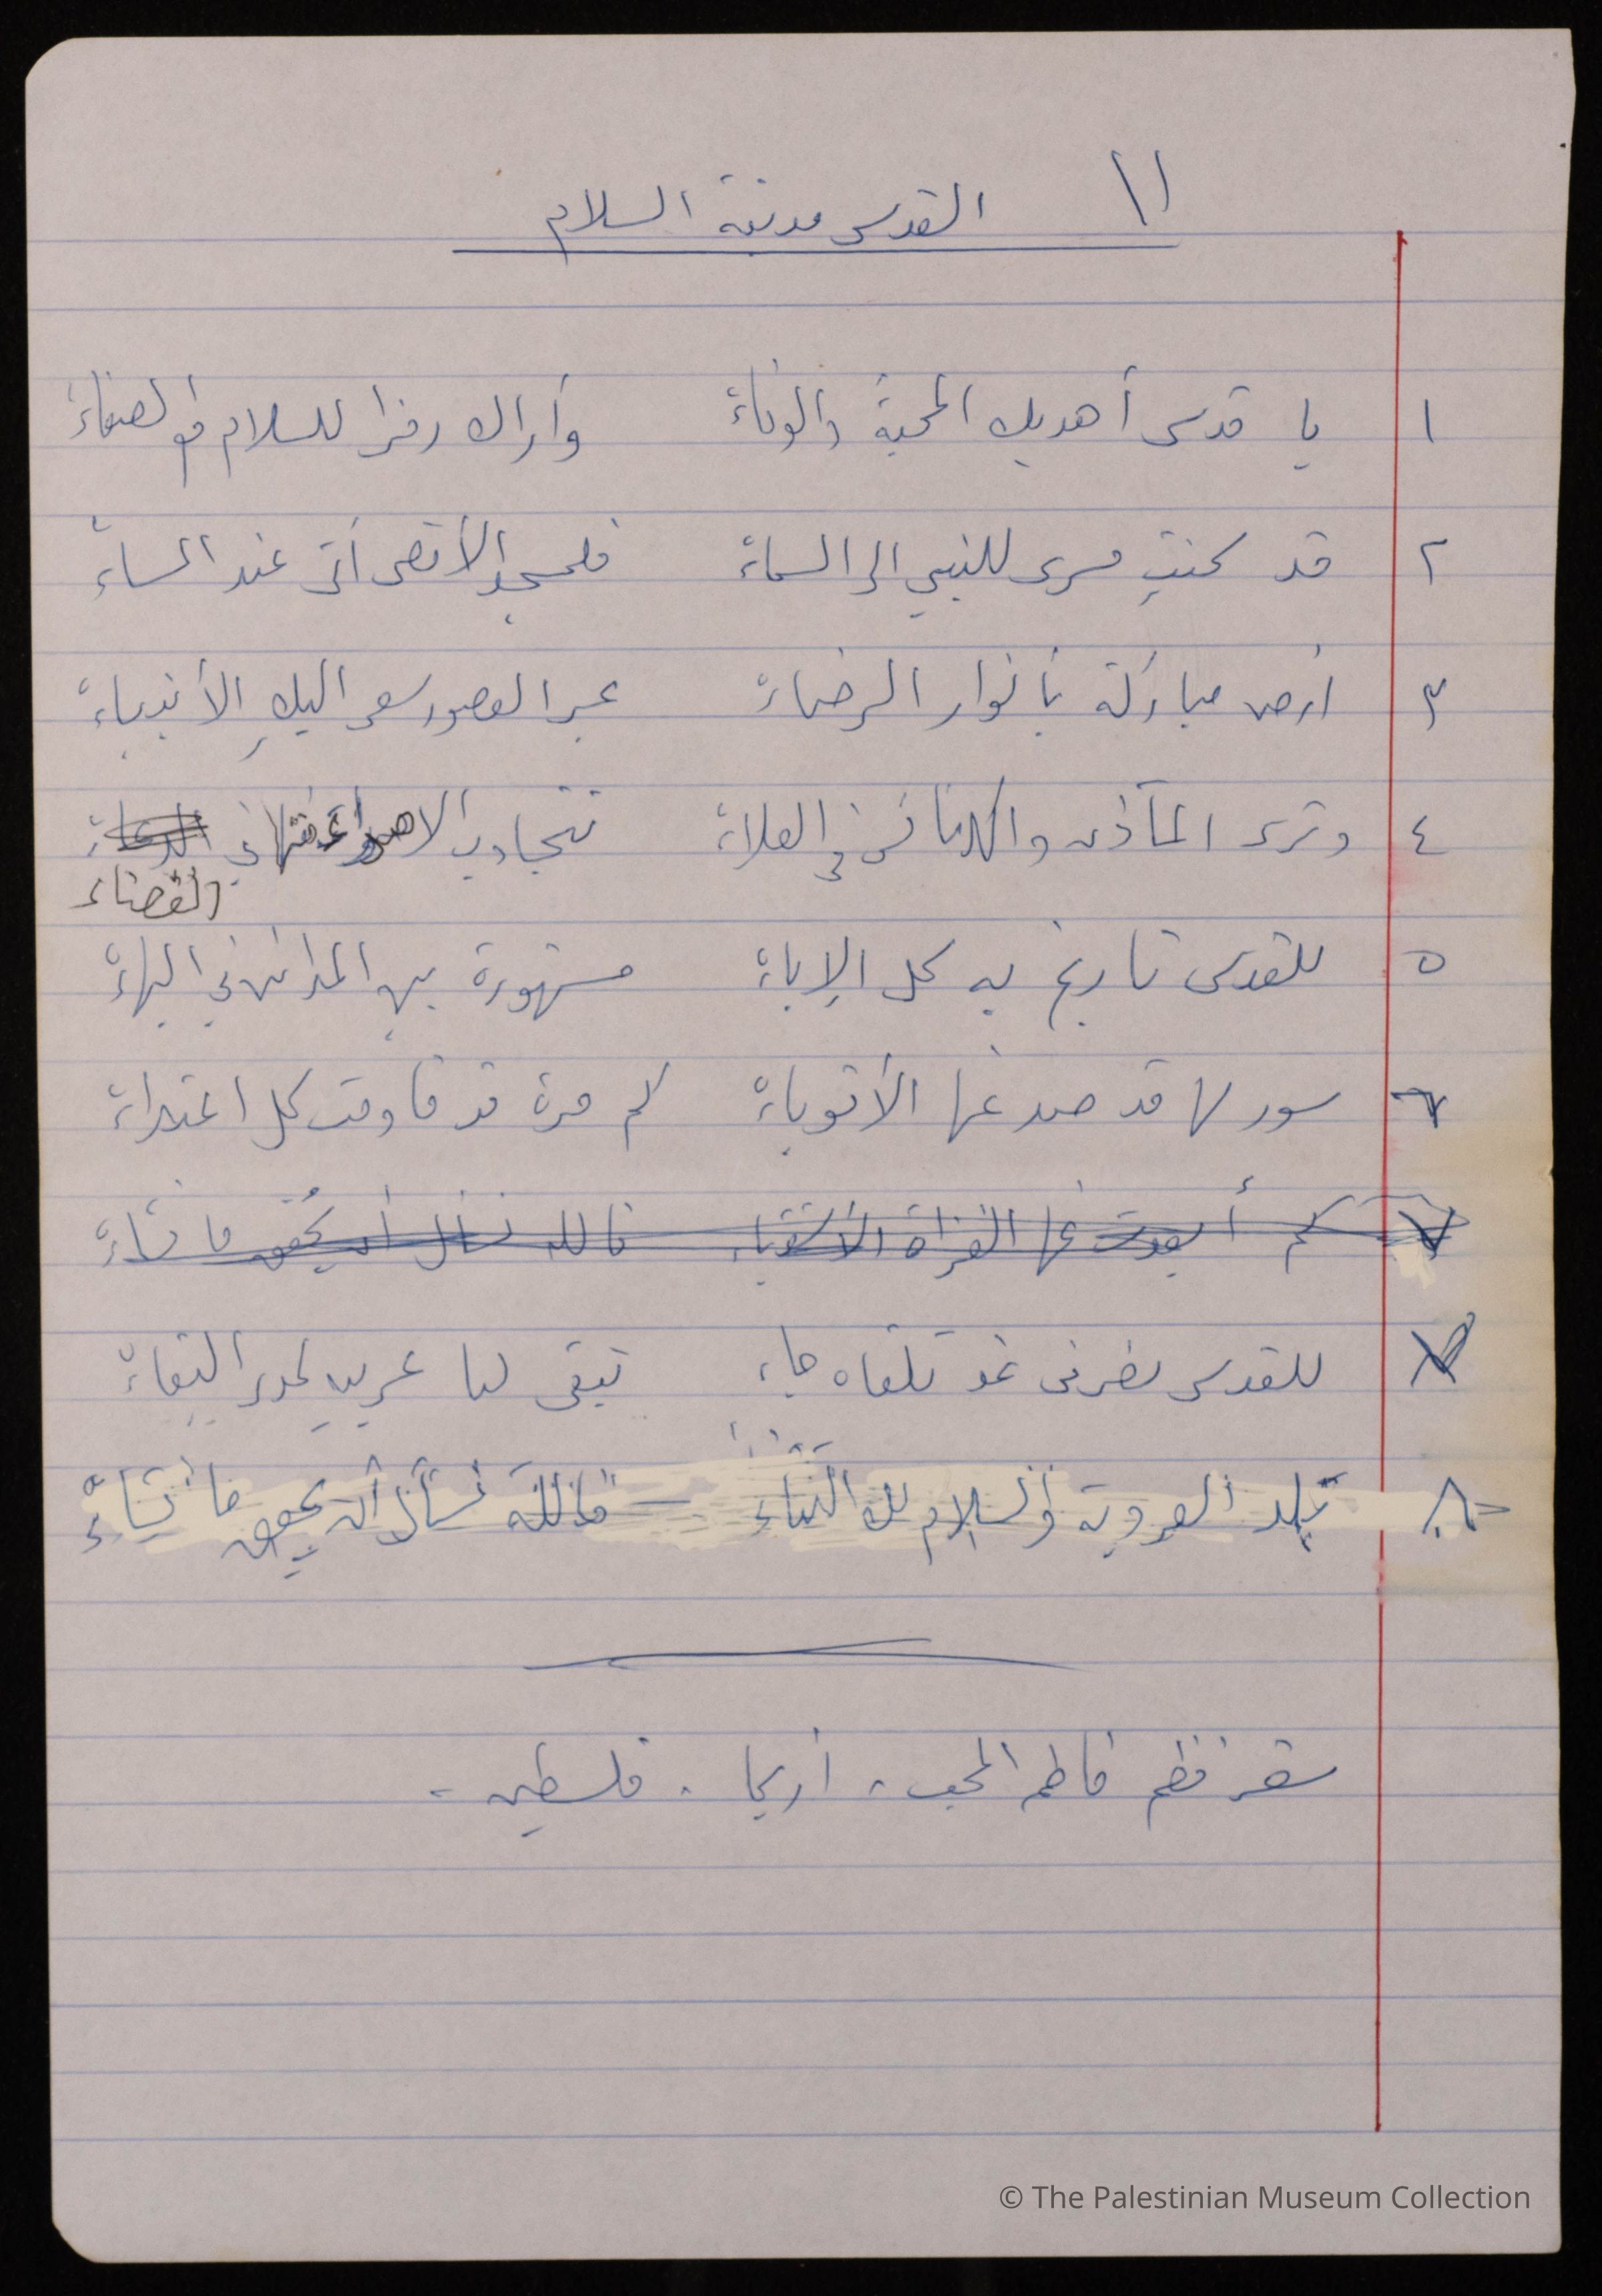 ١١ القدس مدينة السلام
١ يا قدس أهديك المحبة والوفاءْ وأراك رمزا للسلام مع الصفاءْ
٢ قد كنتِ مسرى للنبي الى السماءْ فلمسجدِ الأقصى أتى عند المساءْ
٣ ارض مباركة بأنوار الرضاءْ عبر العصور سعى اليكِ الأنبياءْ
٤ وترى المآذن والكنائس في العلاءْ تتجاوب الاصوات منها في الدعاءْ
الفضاء
٥ للقدس تاريخ به كل الإباءْ مشهورة بين المدائن في البهاءْ
٦ سور لها قد صد عنها الأقوياءْ كم مرة قد قاومت كل اعتداءْ
٧ كم أبعدت عنها الغزاة الأشقياء فالله نسأل أن يُحقق ما نشاءْ
للقدس نصرفى غد تلقاه جاء تبقى لنا عربيةً لمدى البقاءْ
٨ بلد العروبة والسلام لك الثناء فالله نسأل أن يحقق ما نشاءْ
شعر نظم فاطمة المحب، أريحا . فلسطين .
© The Palestinian Museum Collection